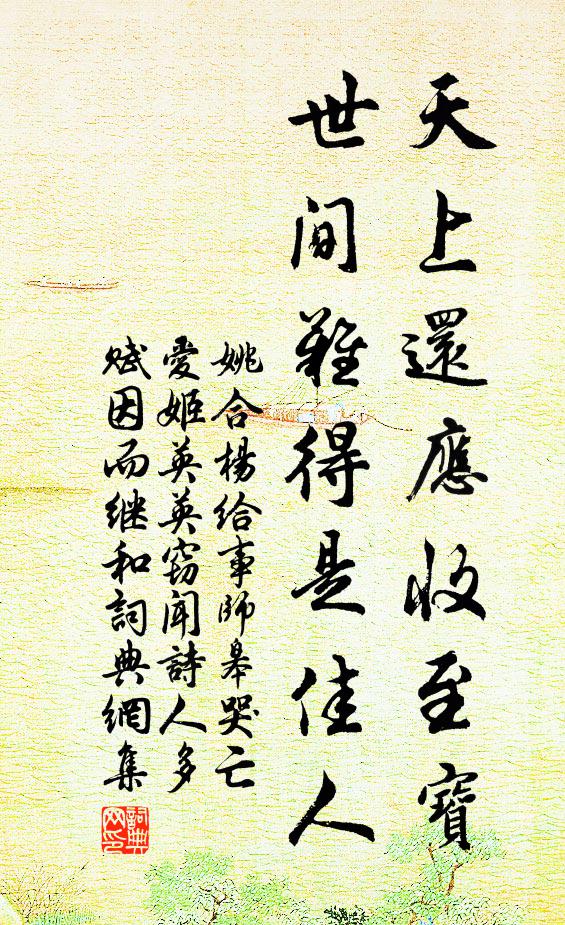 天上還應收至寶
世間難得是佳人
姚合楊給事師皋哭亡
愛姬英英竊聞詩人多
賦因而继和詞典網集
詞典
网印